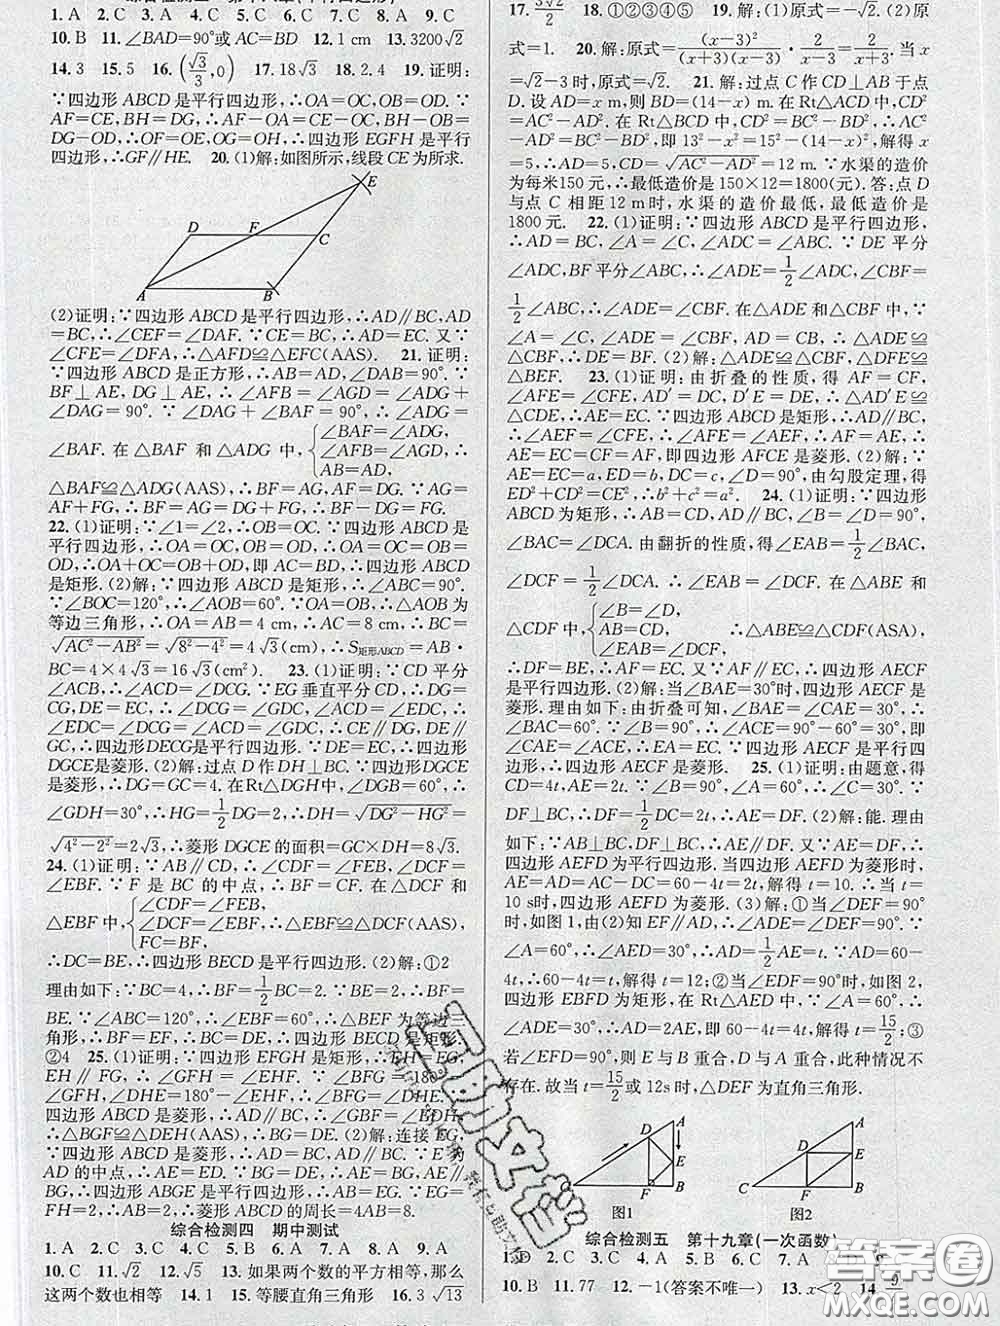 综合检测三　第十八章(平行四边形)
1. A　2. C　3. A　4. C　5. A　6. C　7. A　8. A　9. C
10. B　11. ∠BAD=90°或AC=BD　12. 1 cm　13. 3200√2
14. 3　15. 5　16. (√3/3,0)　17. 18√3　18. 2.4　19. 证明:
∵四边形ABCD是平行四边形,∴OA=OC,OB=OD.∵
AF=CE,BH=DG,∴AF-OA=CE-OC,BH-OB=
DG-OD,∴OF=OE,OG=OH,∴四边形EGFH是平行
四边形,∴GF∥HE.　20. (1)解:如图所示,线段CE为所求.
E
D F C
A B
(2)证明:∵四边形ABCD是平行四边形,∴AD∥BC,AD
=BC,∴∠CEF=∠DAF.∵CE=BC,∴AD=EC.又∵
∠CFE=∠DFA,∴△AFD≌△EFC(AAS).　21. 证明:
∵四边形ABCD是正方形,∴AB=AD,∠DAB=90°.∵
BF⊥AE,DG⊥AE,∴∠AFB=∠AGD=∠ADG+
∠DAG=90°.∵∠DAG+∠BAF=90°,∴∠ADG=
∠BAF.在△BAF和△ADG中,{∠BAF=∠ADG,
∠AFB=∠AGD,
AB=AD,
△BAF≌△ADG(AAS),∴BF=AG,AF=DG.∵AG=
AF+FG,∴BF=AG=DG+FG,∴BF-DG=FG.
22. (1)证明:∵∠1=∠2,∴OB=OC.∵四边形ABCD是
平行四边形,∴OA=OC,OB=OD,∴OA=OC=OB=
OD,∴OA+OC=OB+OD,即AC=BD,∴四边形ABCD
是矩形.(2)解:∵四边形ABCD是矩形,∴∠ABC=90°.
∵∠BOC=120°,∴∠AOB=60°.∵OA=OB,∴△AOB为
等边三角形,∴OA=AB=4 cm,∴AC=8 cm,∴BC=
√(AC²-AB²)=√(8²-4²)=4√3(cm),∴S矩形ABCD=AB·
BC=4×4√3=16√3(cm²).　23. (1)证明:∵CD平分
∠ACB,∴∠ACD=∠DCG.∵EG垂直平分CD,∴DG=
CG,DE=EC,∴∠DCG=∠GDC,∠ACD=∠EDC,∴
∠EDC=∠DCG=∠ACD=∠GDC,∴CE∥DG,DE∥
GC,∴四边形DECG是平行四边形.∵DE=EC,∴四边形
DGCE是菱形.(2)解:过点D作DH⊥BC.∵四边形DGCE
是菱形,∴DG=GC=4.在Rt△DGH中,∠DGB=60°,
∴∠GDH=30°,∴HG=1/2DG=2,∴DH=√(DG²-HG²)=
√(4²-2²)=2√3,∴菱形DGCE的面积=GC×DH=8√3.
24. (1)证明:∵AB∥CD,∴∠CDF=∠FEB,∠DCF=
∠EBF.∵F是BC的中点,∴BF=CF.在△DCF和
△EBF中,{∠CDF=∠FEB,
∠DCF=∠EBF,
FC=BF,
∴△EBF≌△DCF(AAS),
∴DC=BE,∴四边形BECD是平行四边形.(2)解:①2
理由如下:∵BC=4,∴BF=1/2BC=2.∵BE=2,∴BF=
BE.∵∠ABC=120°,∴∠EBF=60°,∴△BEF为等边三
角形,∴BF=EF.∴BC=DE,∴四边形BECD是矩形.
②4　25. (1)证明:∵四边形EFGH是矩形,∴EH=FG,
EH∥FG,∴∠GFH=∠EHF.∵∠BFG=180°-
∠GFH,∠DHE=180°-∠EHF,∴∠BFG=∠DHE.∵
四边形ABCD是菱形,∴AD∥BC,∴∠GBF=∠EDH,
∴△BGF≌△DEH(AAS),∴BG=DE.(2)解:连接EG.
∵四边形ABCD是菱形,∴AD=BC,AD∥BC.∵E为
AD的中点,∴AE=ED.∵BG=DE,∴AE=BG,AE∥BG,
∴四边形ABGE是平行四边形,∴AB=EG.∵EG=
FH=2,∴AB=2,∴菱形ABCD的周长=4AB=8.
综合检测四　期中测试
1. A　2. C　3. C　4. A　5. B　6. A　7. C　8. C　9. A
10. C　11. √2　12. √5　13. 如果两个数的平方相等,那么
这两个数也相等　14. 1　15. 等腰直角三角形　16. 3√13
17. 3√2/2　18. ①②③④⑤　19. 解:(1)原式=-√2.(2)原
式=1.　20. 解:原式=(x-3)²/((x+3)(x-3))·2/(x-3)=2/(x+3).当x
=√2-3时,原式=√2.　21. 解:过点C作CD⊥AB于点
D.设AD=x m,则BD=(14-x) m.在Rt△ACD中,CD²
=AC²-AD².在Rt△BCD中,CD²=BC²-BD²,∴AC²-
AD²=BC²-BD²,即13²-x²=15²-(14-x)².解得x
=5,∴AD=5,∴CD=√(AC²-AD²)=12 m.∵水渠的造价
为每米150元,∴最低造价是150×12=1800(元).答:点D
与点C相距12 m时,水渠的造价最低,最低造价是
1800元.　22. (1)证明:∵四边形ABCD是平行四边形,
∴AD=BC,∠A=∠C,∠ADC=∠ABC.∵DE平分
∠ADC,BF平分∠ABC,∴∠ADE=1/2∠ADC,∠CBF=
1/2∠ABC,∴∠ADE=∠CBF.在△ADE和△CBF中,
∵∠A=∠C,AD=BC,∠ADE=∠CBF,∴△ADE≌
△CBF,∴DE=BF.(2)解:△ADE≌△CBF,△DFE≌
△BEF.　23. (1)证明:由折叠的性质,得AF=CF,
∠AFE=∠CFE,AD′=DC,D′E=DE,∴△AD′E≌
△CDE,∴AE=EC.∵四边形ABCD是矩形,∴AD∥BC,
∴∠AEF=∠CFE,∴∠AFE=∠AEF,∴AF=AE,∴
AE=EC=CF=AF,即四边形AFCE是菱形.(2)解:∵
AE=EC=a,ED=b,DC=c,∠D=90°,由勾股定理,得
ED²+CD²=CE²,∴b²+c²=a².　24. (1)证明:∵四边形
ABCD为矩形,∴AB=CD,AD∥BC,∠B=∠D=90°,
∠BAC=∠DCA.由翻折的性质,得∠EAB=1/2∠BAC,
∠DCF=1/2∠DCA.∴∠EAB=∠DCF.在△ABE和
△CDF中,{∠B=∠D,
AB=CD,
∠EAB=∠DCF,
∴△ABE≌△CDF(ASA),
∴DF=BE.∴AF=EC.又∵AF∥EC,∴四边形AECF
是平行四边形.(2)解:当∠BAE=30°时,四边形AECF是
菱形.理由如下:由折叠可知,∠BAE=∠CAE=30°,∴
∠BAC=60°.∵∠B=90°,∴∠ACE=90°-60°=30°,即
∠CAE=∠ACE=30°,∴EA=EC.∵四边形AECF是平行四
边形,∴四边形AECF是菱形.　25. (1)证明:由题意,得
CD=4t,AE=2t.∵∠B=90°,∠A=60°,∴∠C=30°.∵
DF⊥BC,∴DF=1/2DC=2t,∴AE=DF.(2)解:能.理由
如下:∵DF⊥BC,∠B=90°,∴AE∥DF.又∵AE=DF,∴
四边形AEFD为平行四边形.当四边形AEFD为菱形时,
AE=AD=AC-DC=60-4t=2t,解得t=10.∴当t=
10 s时,四边形AEFD为菱形.(3)解:①当∠DEF=90°
时,如图1,由(2)知EF∥AD,∴∠ADE=∠DEF=90°.∵
∠A=60°,∴∠AED=30°,∴AD=1/2AE=t.∵AD=60-
4t,∴60-4t=t,解得t=12;②当∠EDF=90°时,如图2,
四边形EBFD为矩形.在Rt△AED中,∵∠A=60°,∴
∠ADE=30°,∴AD=2AE,即60-4t=4t,解得t=15/2;③
若∠EFD=90°,则E与B重合,D与A重合,此种情况不
存在.故当t=15/2 s或12s时,△DEF为直角三角形.
A D E C F B
图1
A D E C F B
图2
综合检测五　第十九章(一次函数)
1. D　2. C　3. C　4. A　5. B　6. C　7.
10. B　11. 77　12. -1(答案不唯一)　13. x<2　14.
答案圈
MXQE.COM